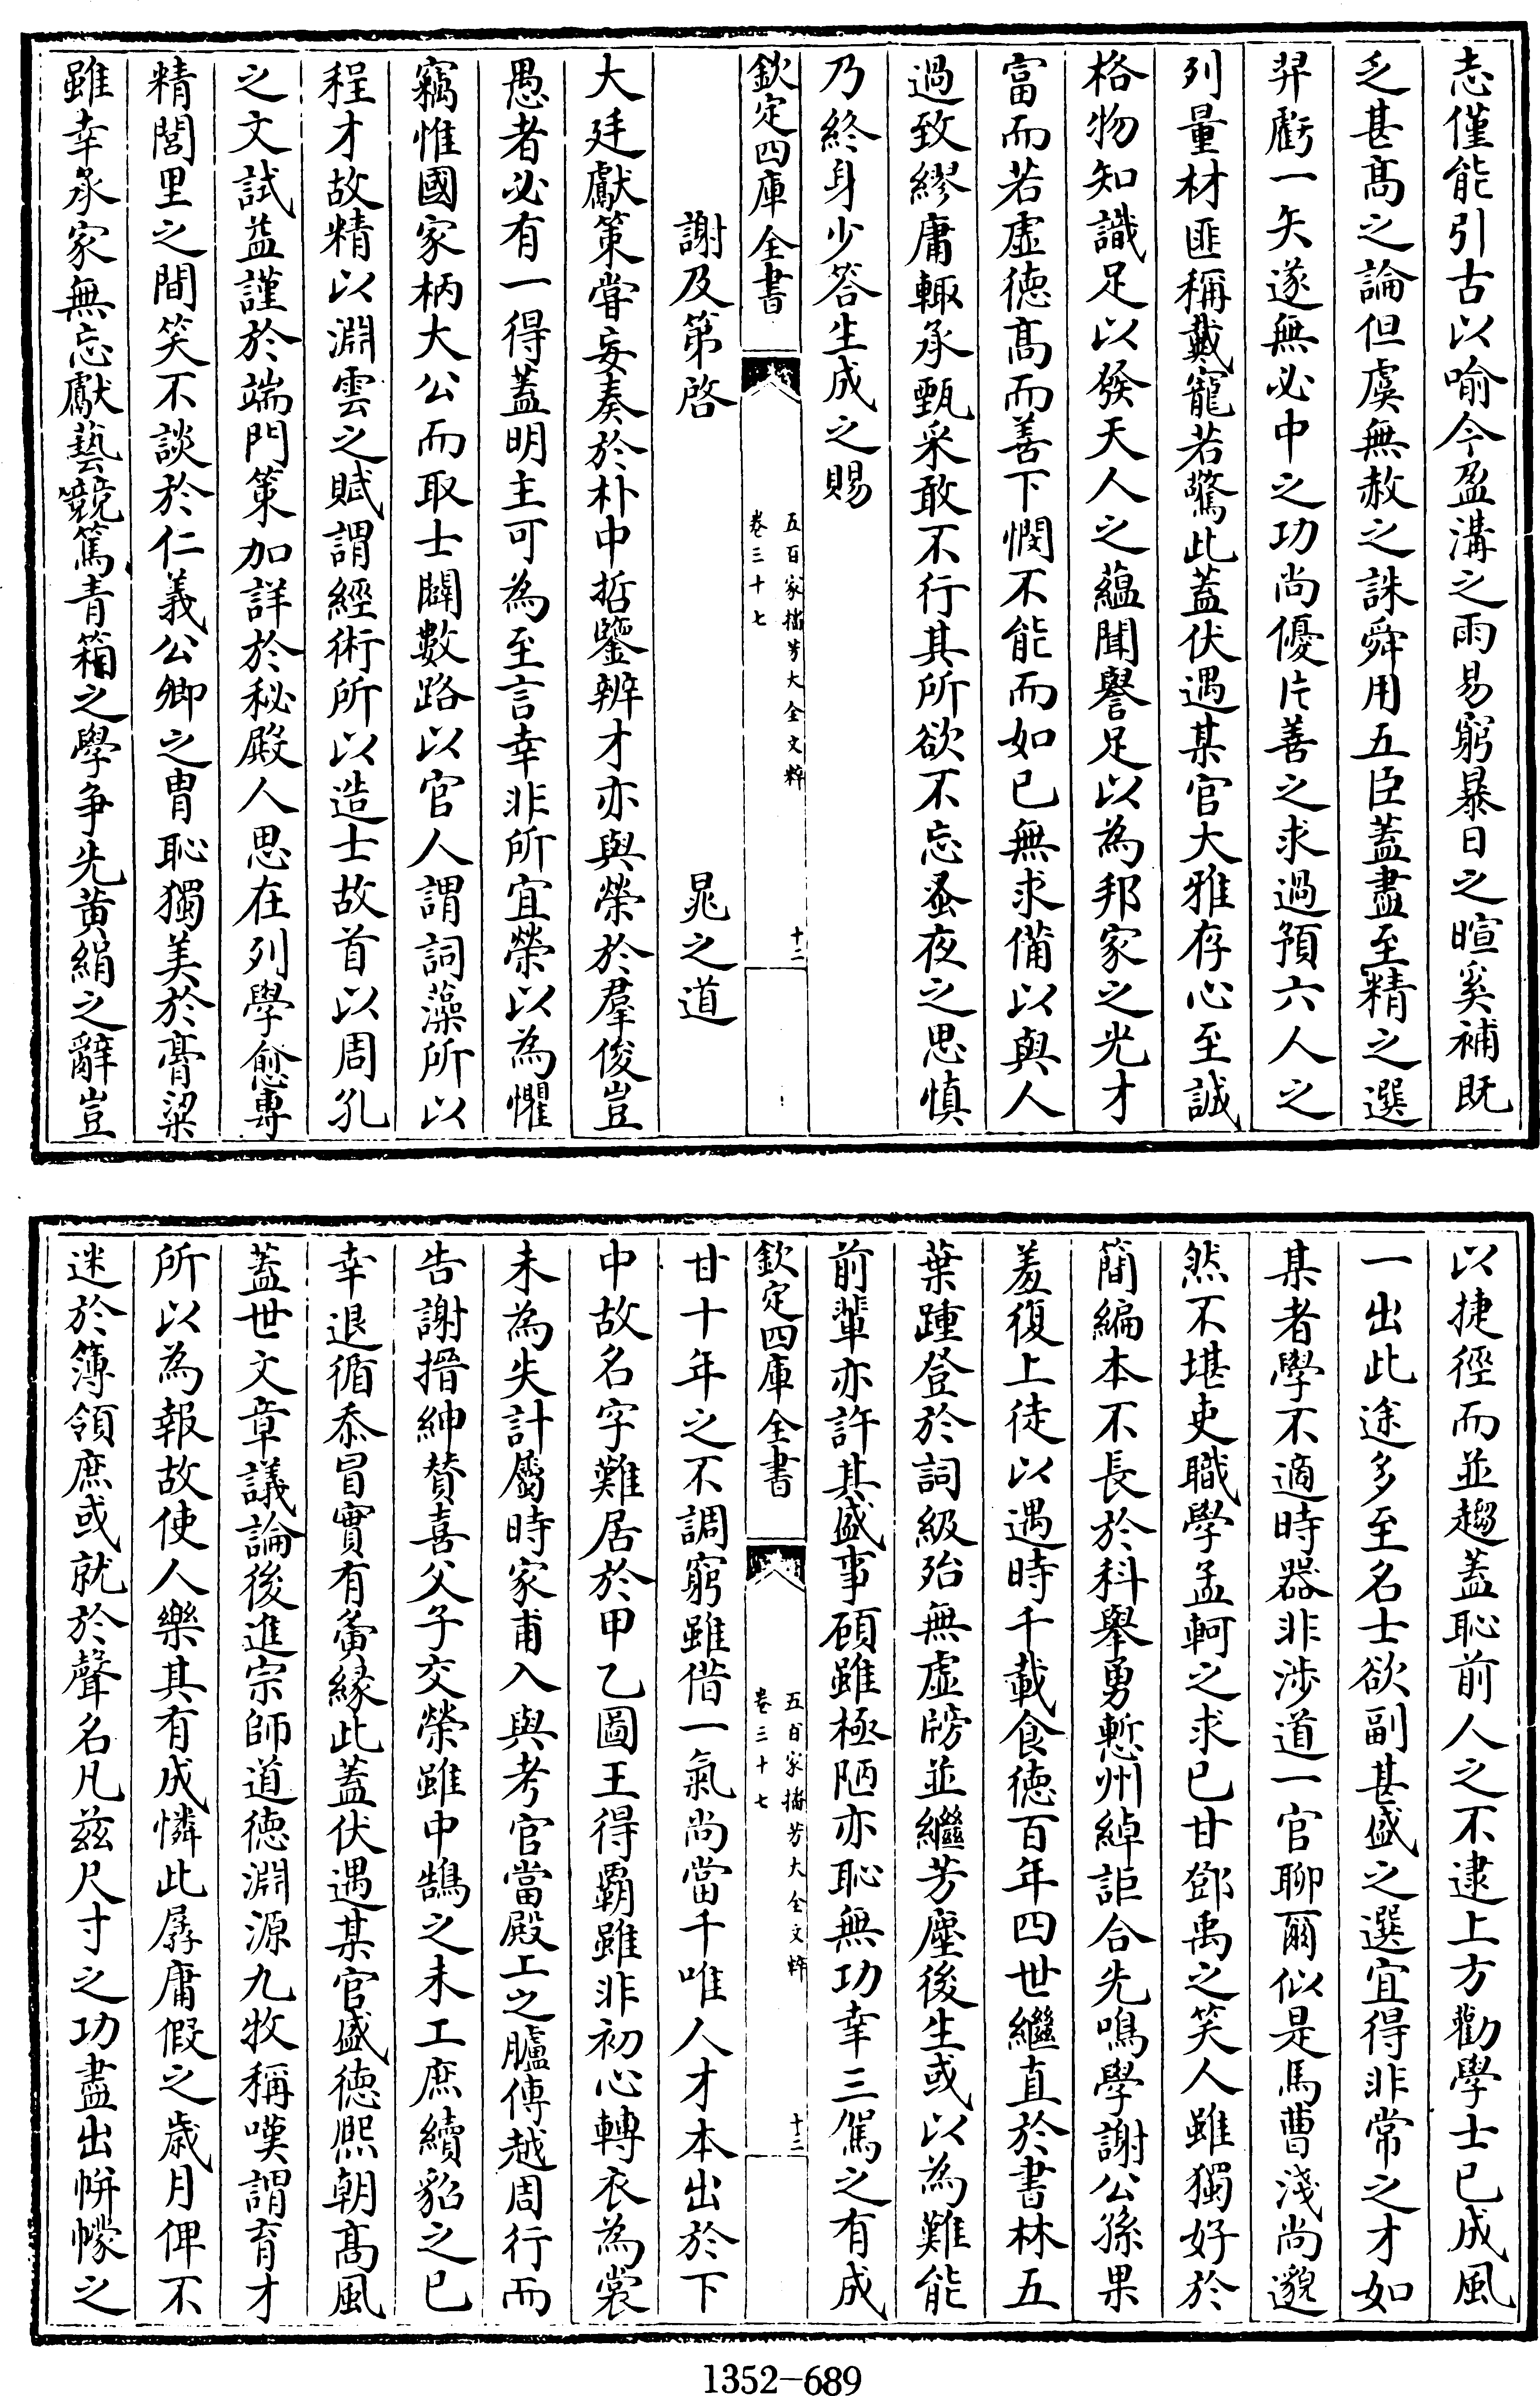 志僅能引古以喻今盈溝之雨易窮暴日之暄奚補既
乏甚髙之論但虞無赦之誅舜用五臣蓋盡至精之選
羿虧一矢遂無必中之功尚優片善之求過預六人之
列量材匪稱戴寵若驚此蓋伏遇某官大雅存心至誠
格物知識足以發天人之蘊聞譽足以為邦家之光才
富而若虚徳髙而善下憫不能而如已無求備以與人
過致繆庸輙承甄采敢不行其所欲不忘蚤夜之思慎
乃終身少答生成之賜
欽定四庫全書
五百家播芳大全文粹
卷三十七
十二
謝及第啓 晁之道
大廷獻策嘗妄奏於朴中哲鑒辨才亦與榮於羣俊豈
愚者必有一得蓋明主可為至言幸非所宜榮以為懼
竊惟國家柄大公而取士闢數路以官人謂詞藻所以
程才故精以淵雲之賦謂經術所以造士故首以周孔
之文試益謹於端門策加詳於秘殿人思在列學愈專
精閭里之間笑不談於仁義公卿之胄恥獨美於膏粱
雖幸承家無忘獻藝競篤青箱之學争先黄絹之辭豈
以捷徑而並趨蓋恥前人之不逮上方勸學士已成風
一出此途多至名士欲副甚盛之選宜得非常之才如
某者學不適時器非涉道一官聊爾似是馬曹淺尚邈
然不堪吏職學孟軻之求已甘鄧禹之笑人雖獨好於
簡編本不長於科舉勇慙州綽詎合先鳴學謝公孫果
羞復上徒以遇時千載食徳百年四世繼直於書林五
葉踵登於詞級殆無虚牓並繼芳塵後生或以為難能
前輩亦許其盛事顧雖極陋亦恥無功幸三駕之有成
欽定四庫全書
五百家播芳大全文粹
卷三十七
十三
甘十年之不調窮雖借一氣尚當千唯人才本出於下
中故名字難居於甲乙圖王得霸雖非初心轉衣為裳
未為失計屬時家甫入與考官當殿工之臚傳越周行而
告謝搢紳賛喜父子交榮雖中鵠之未工庶續貂之已
幸退循忝冒實有夤縁此蓋伏遇某官盛徳熈朝髙風
蓋世文章議論後進宗師道徳淵源九牧稱嘆謂育才
所以為報故使人樂其有成憐此孱庸假之歲月俾不
迷於簿領庶或就於聲名凡兹尺寸之功盡出帡幪之
1352-689